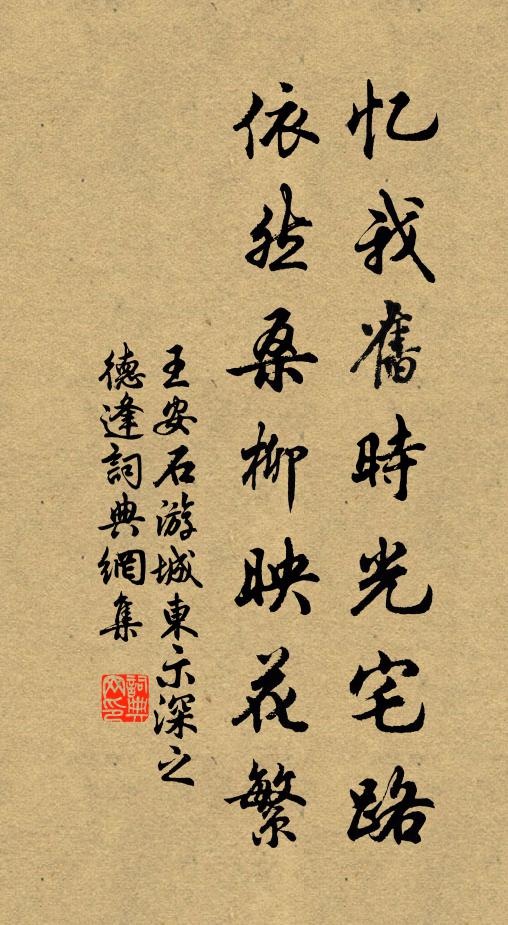 忆我舊時光宅路
依然桑柳映花繁
王安石游城東示深之
德逢詞典網集
詞典網印